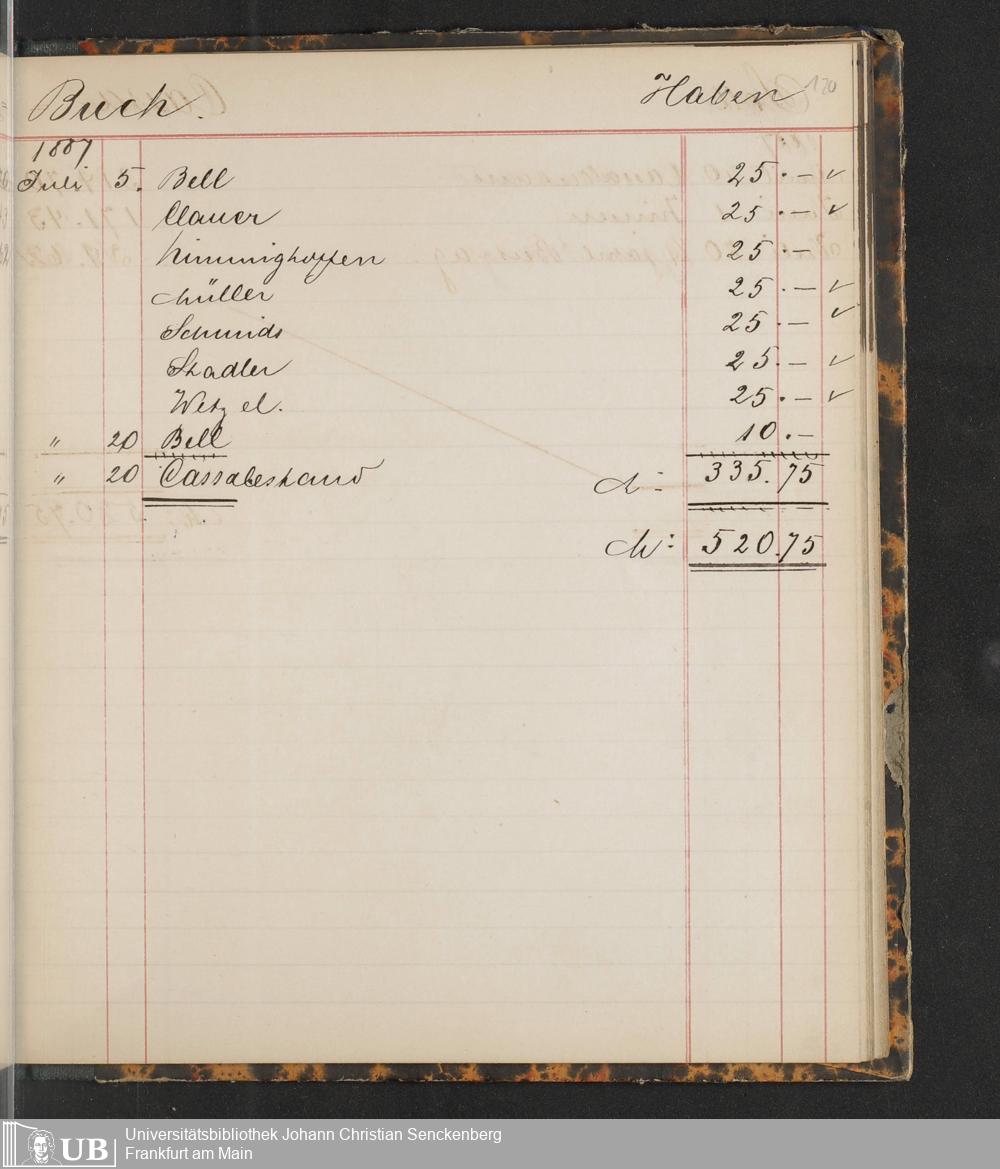 Buch. Haben 120
1887
Juli 5. Bell 25.— ✓
Clauer 25.— ✓
Kimminghoffen 25.—
Müller 25.— ✓
Schmidt 25.— ✓
Stadler 25.— ✓
Wetzel. 25.— ✓
" 20 Bell 10.—
" 20 Cassabestand M: 335.75
M: 520.75
UB Universitätsbibliothek Johann Christian Senckenberg
Frankfurt am Main